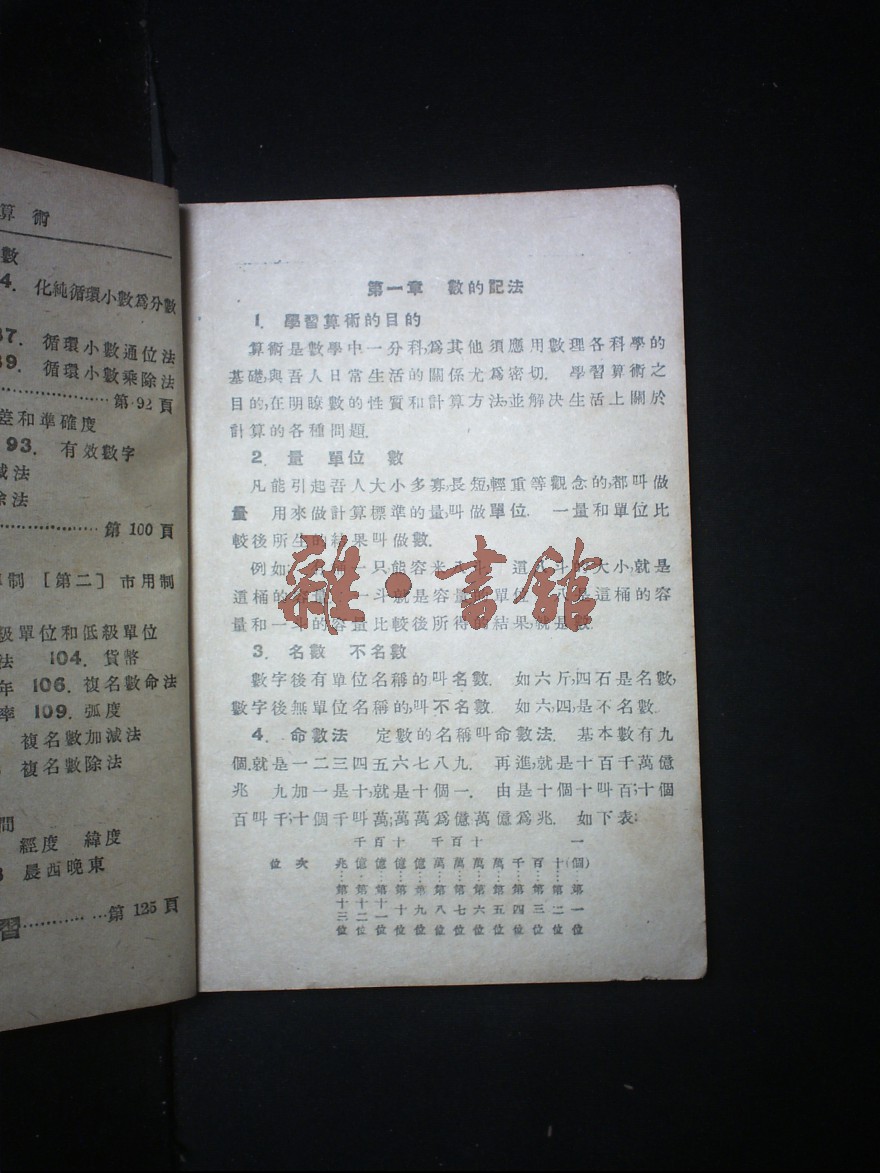 算術
數
4. 化純循環小數爲分數
87. 循環小數通位法
89. 循環小數乘除法
第 92 頁
差和準確度
93. 有效數字
減法
除法
第 100 頁
制 [第二] 市用制
級單位和低級單位
法 104. 貨幣
年 106. 複名數命法
率 109. 弧度
複名數加減法
複名數除法
間
經度 緯度
晨西晚東
習 第 125 頁
第一章 數的記法
1. 學習算術的目的
算術是數學中一分科,爲其他須應用數理各科學的
基礎,與吾人日常生活的關係尤爲密切. 學習算術之
目的,在明瞭數的性質和計算方法,並解決生活上關於
計算的各種問題.
2. 量 單位 數
凡能引起吾人大小多寡,長短,輕重等觀念的,都叫做
量 用來做計算標準的量,叫做單位. 一量和單位比
較後所生的結果叫做數.
例如 一只,能容米 斗. 這 的大小,就是
這桶的 一斗就是容量的單位 是這桶的容
量和一斗的容量比較後所得的結果,就是數.
3. 名數 不名數
數字後有單位名稱的叫名數. 如六斤,四石是名數,
數字後無單位名稱的,叫不名數. 如六,四,是不名數.
4. 命數法 定數的名稱叫命數法. 基本數有九
個.就是一二三四五六七八九. 再進,就是十百千萬億
兆 九加一是十,就是十個一. 由是十個十叫百;十個
百叫千;十個千叫萬;萬萬爲億萬億爲兆. 如下表:
千百十 千百十 一
位次 兆億億億億萬萬萬萬千百十(個)
第十三位 第十二位 第十一位 第十位 第九位 第八位 第七位 第六位 第五位 第四位 第三位 第二位 第一位
雜·書館